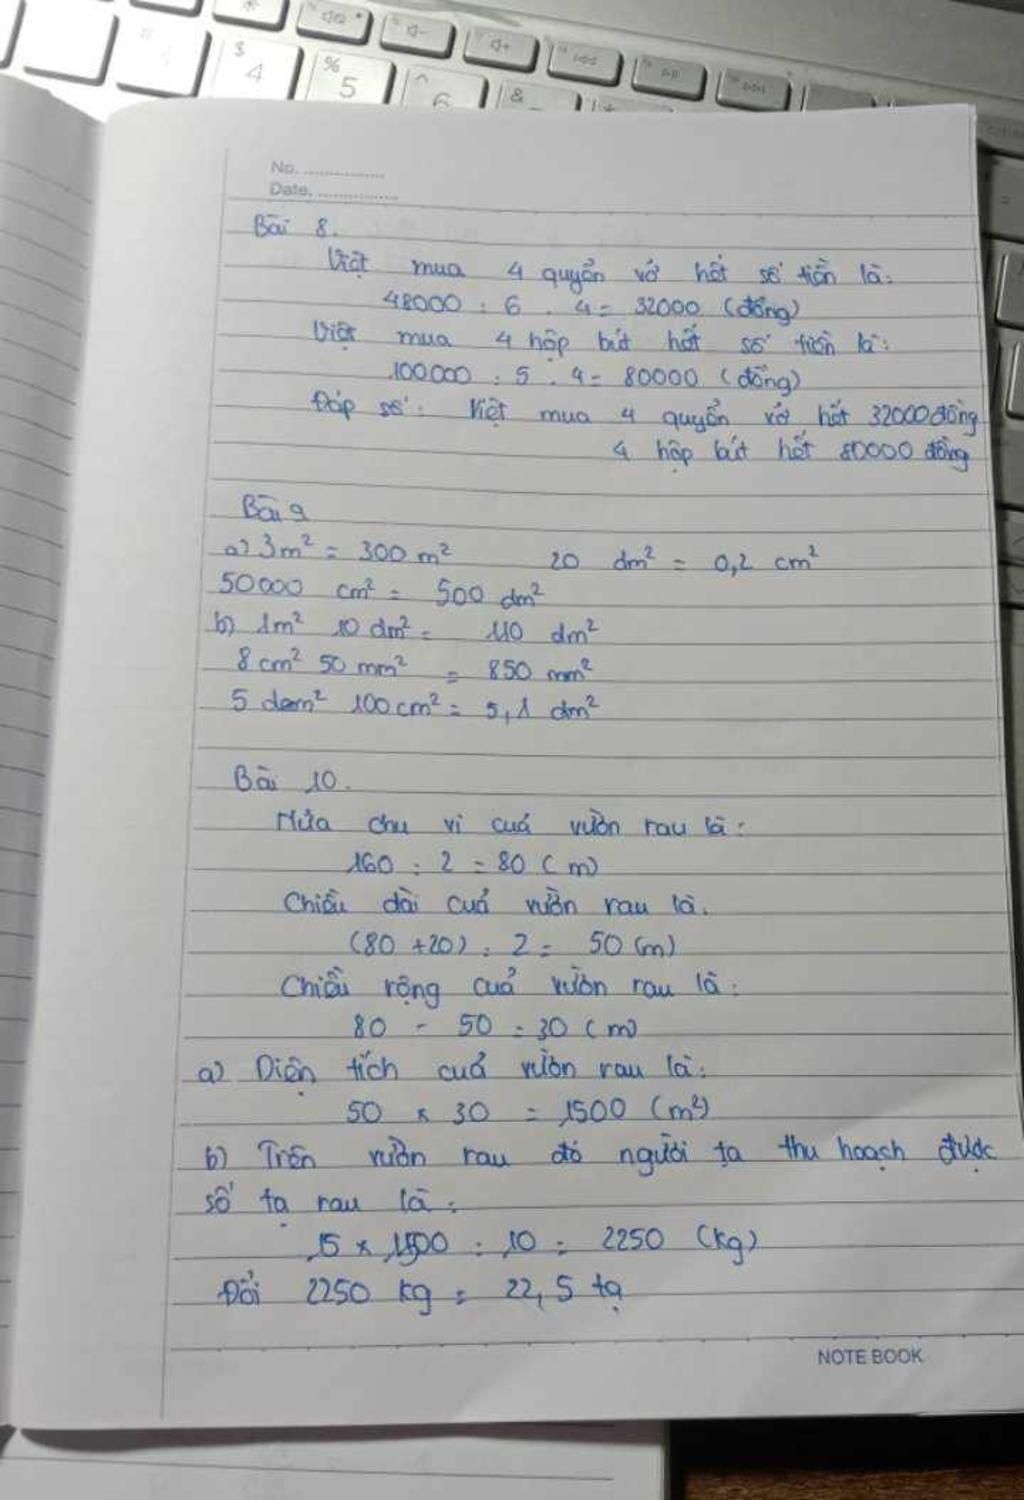 $
4
%
5
^
6
&
No. ...............
Date. ...............
Bài 8.
Việt mua 4 quyển vở hết số tiền là:
48000 : 6 . 4 = 32000 (đồng)
Việt mua 4 hộp bút hết số tiền là:
100000 : 5 . 4 = 80000 (đồng)
Đáp số: Việt mua 4 quyển vở hết 32000 đồng
4 hộp bút hết 80000 đồng
Bài 9
a) 3m² = 300 m² 20 dm² = 0,2 cm²
50000 cm² = 500 dm²
b) 1m² 10 dm² = 110 dm²
8 cm² 50 mm² = 850 mm²
5 dm² 100 cm² = 5,1 dm²
Bài 10.
Nửa chu vi cuả vườn rau là:
160 : 2 = 80 (m)
Chiều dài cuả vườn rau là.
(80 + 20) : 2 = 50 (m)
Chiều rộng cuả vườn rau là:
80 - 50 = 30 (m)
a) Diện tích cuả vườn rau là:
50 x 30 = 1500 (m²)
b) Trên vườn rau đó người ta thu hoạch được
số tạ rau là:
15 x 1500 : 10 = 2250 (kg)
Đổi 2250 kg = 22,5 tạ
NOTE BOOK